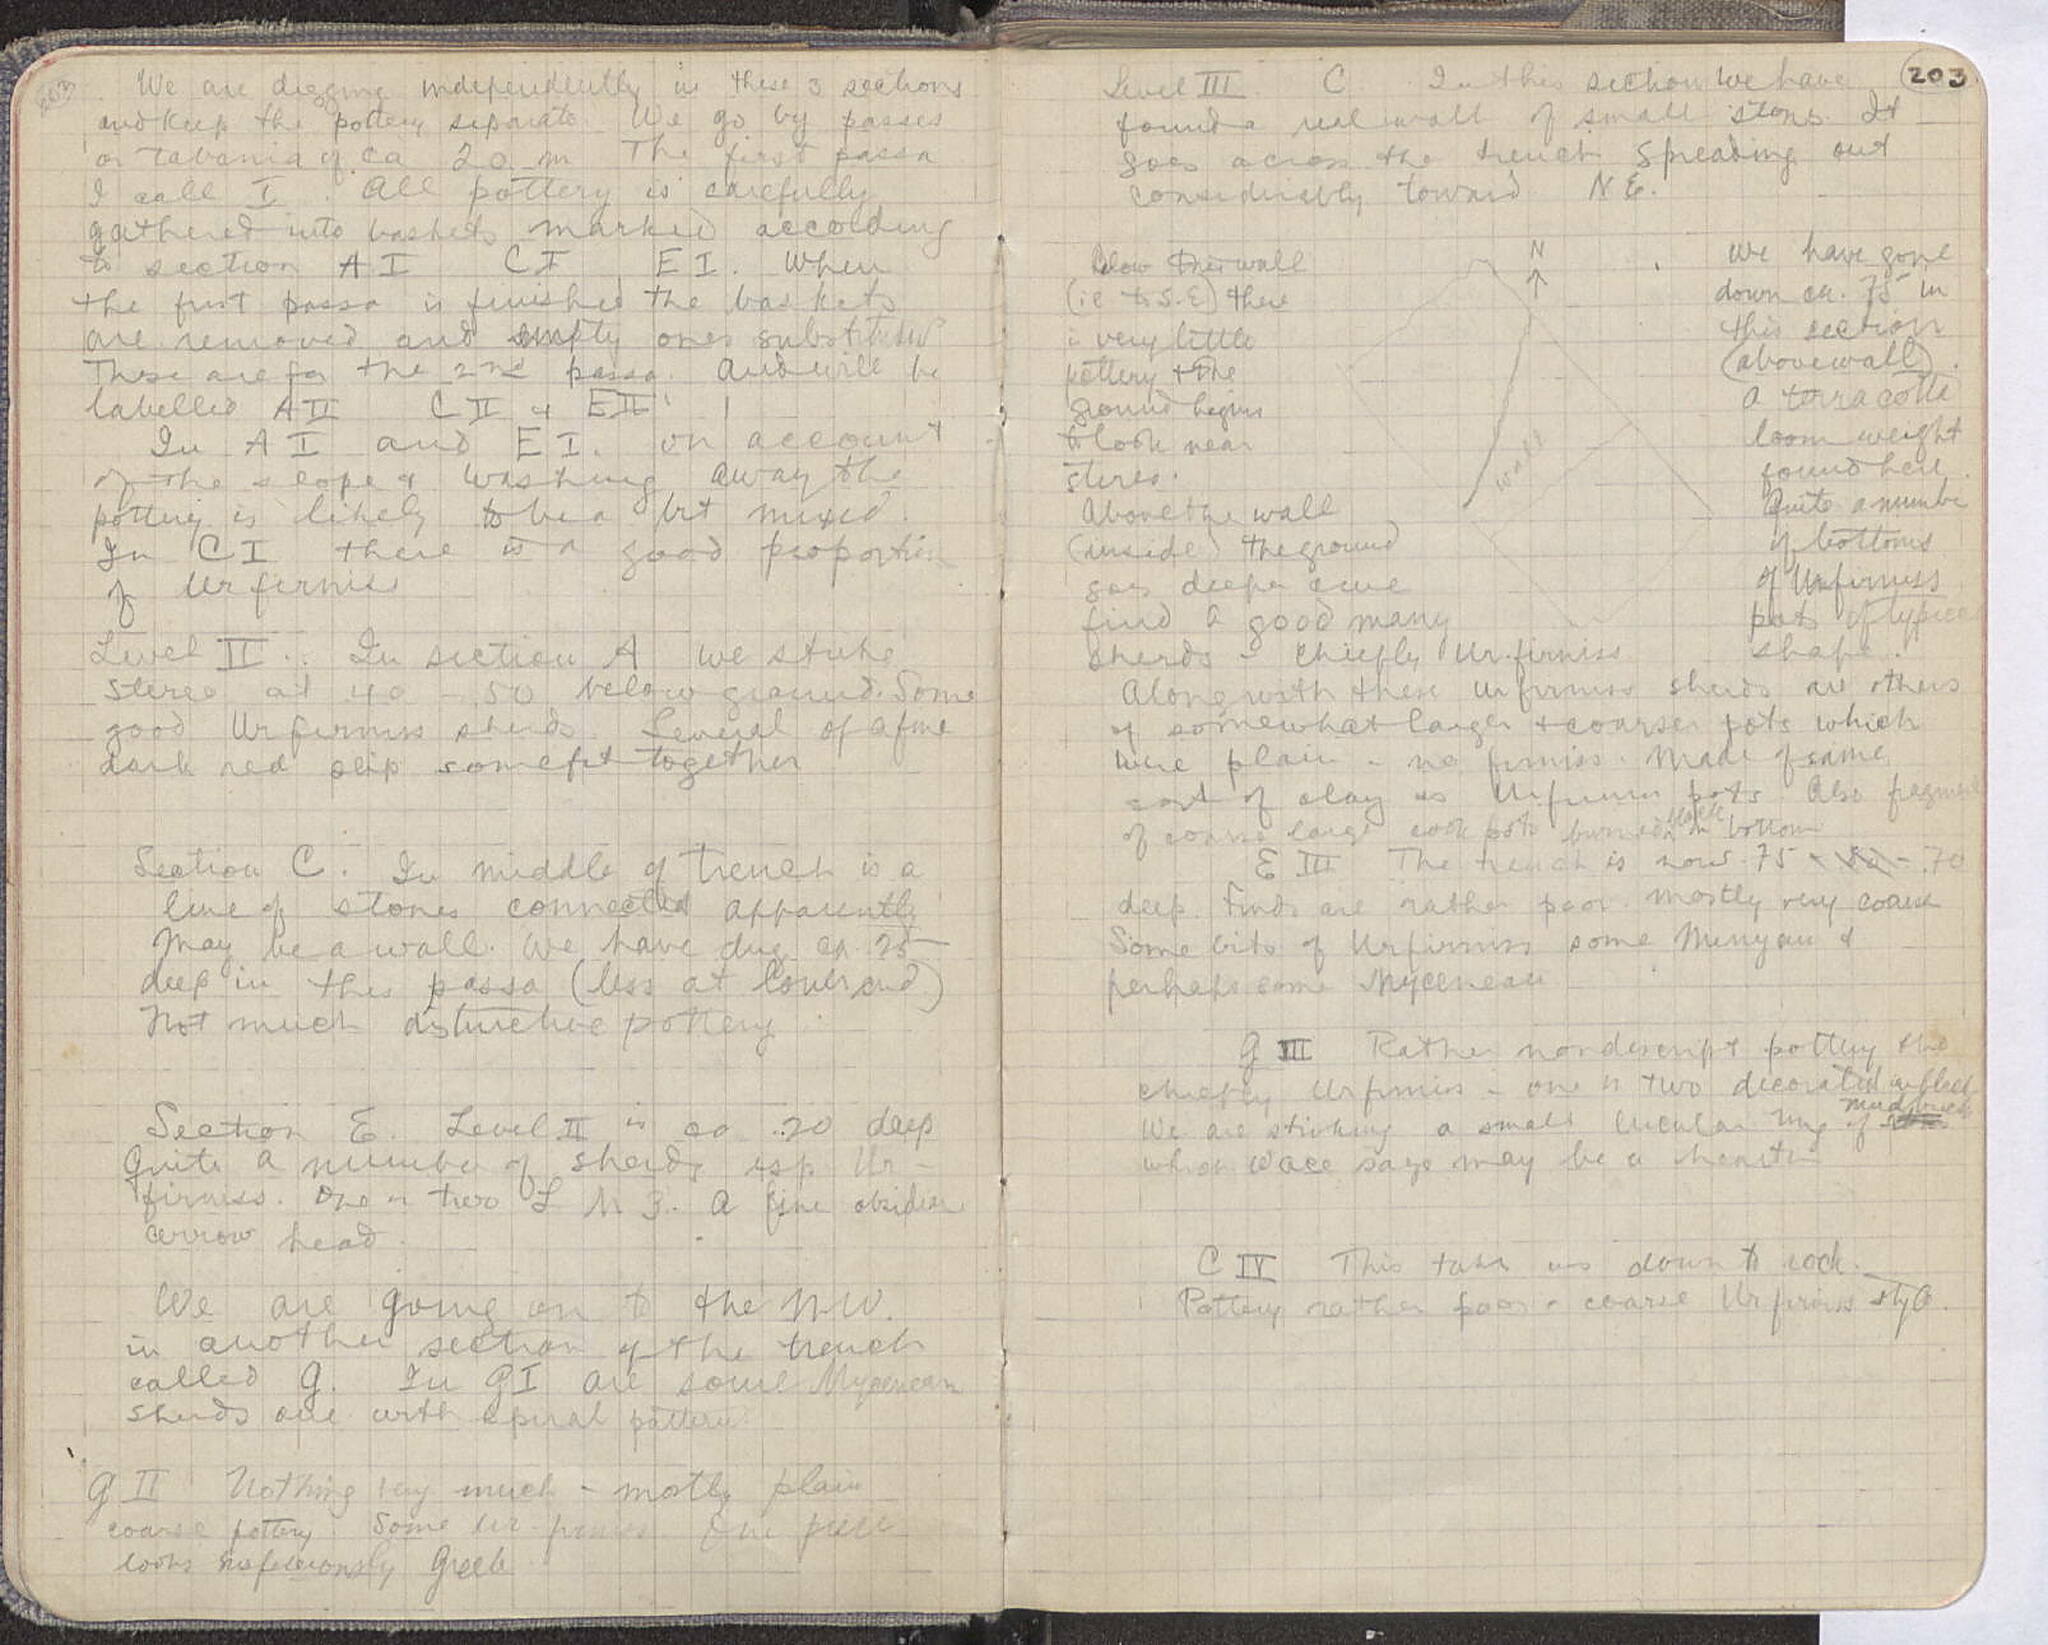 We are digging independently in these 3 sections
and keep the pottery separate. We go by passes
or tabania of ca 20 m The first passa
I call I. All pottery is carefully
gathered into baskets marked according
to section A I C I E I. When
the first passa is finished the baskets
are removed and empty ones substituted
These are for the 2nd passa. and will be
labelled A II C II & E II
In A I and E I. on account
of the slope & washing away the
pottery is likely to be a bit mixed.
In C I there is a good proportion
of Urfirniss
Level II. In section A we strike
stereo at 40 - 50 below ground. Some
good Urfirniss sherds. Several of a fine
dark red slip some fit together
Section C. In middle of trench is a
line of stones connected apparently
may be a wall. We have dug ca. 25
deep in this passa (less at lower end)
Not much distinctive pottery
Section E. Level II is ca .20 deep
Quite a number of sherds esp. Ur-
firniss. One or two L M 3. A fine obsidian
arrow head.
We are going on to the N.W.
in another section of the trench
called G. In G I are some Mycenean
sherds one with spiral pattern
G II Nothing very much - mostly plain
coarse pottery. Some Ur-firniss One piece
looks suspiciously Greek
203
Level III C In this section we have
found a real wall of small stones. It
goes across the trench spreading out
considerably toward N E.
Below this wall
(ie to S.E) there
is very little
pottery & the
ground begins
to look near
stereo.
Above the wall
(inside) the ground
goes deeper & we
find a good many
sherds - chiefly Urfirniss
N
wall
We have gone
down ca. 75 in
this section
(above wall).
A terracotta
loom weight
found here.
Quite a number
of bottoms
of Urfirniss
pots of typical
shape.
Along with these Urfirniss sherds are others
of somewhat larger & coarser pots which
were plain - no firniss. Made of same
sort of clay as Urfirniss pots. Also fragments
of coarse large cook pots burned black on bottom
E III The trench is now .75 - .70
deep. Finds are rather poor. mostly very coarse
Some bits of Urfirniss some Minyan &
perhaps some Mycenean
G III Rather nondescript pottery tho
chiefly Urfirniss - one or two decorated
We are striking a small circular ring of mud brick
which Wace says may be a hearth
C IV This takes us down to rock.
Pottery rather poor & coarse Urfirniss style.